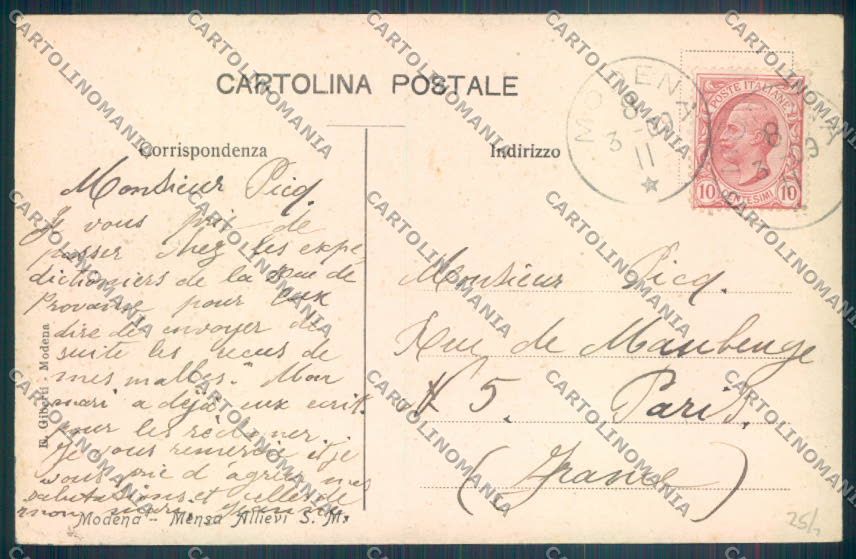 CARTOLINA POSTALE
Corrispondenza
Indirizzo
MODENA
8
3
11
POSTE ITALIANE
10 CENTESIMI 10
Monsieur Picq.
Je vous prie de
passer chez les expé
ditionniers de la Rue de
Provanse pour eux
dire de envoyer de
suite les recus de
mes malles. Mon
mari a déjà eux ecrit
pour les réclamer.
Je vous remercie et je
vous prie d'agréer mes
salutations et celles de
mon mari.
Monsieur Picq.
Rue de Maubeuge
N 5. Paris.
(France)
E. Giberti - Modena
Modena - Mensa Allievi S. M.
25/
CARTOLINOMANIA